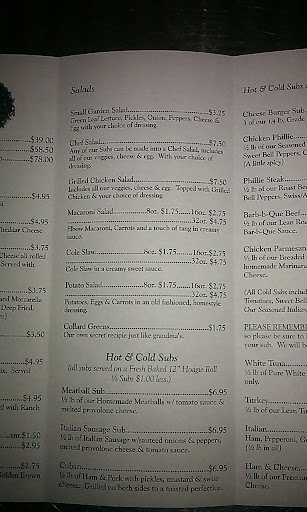 Salads
Small Garden Salad..............................$3.25
Green Leaf Lettuce, Pickles, Onion, Peppers, Cheese &
Egg with your choice of dressing.
Chef Salad..............................$7.50
Any of our Subs can be made into a Chef Salad, includes
all of our veggies, cheese & egg. With your choice of
dressing.
Grilled Chicken Salad..............................$7.50
Includes all our veggies, cheese & egg. Topped with Grilled
Chicken & your choice of dressing.
Macaroni Salad..........8oz. $1.75........16oz. $2.75
32oz. $4.75
Elbow Macaroni, Carrots and a touch of tang in creamy
sauce.
Cole Slaw..........8oz. $1.75........16oz. $2.75
32oz. $4.75
Cole Slaw in a creamy sweet sauce.
Potato Salad..........8oz. $1.75........16oz. $2.75
32oz. $4.75
Potatoes, Eggs & Carrots in an old fashioned, homestyle
dressing.
Collard Greens..............................$1.75
Our own secret recipe just like grandma's.
Hot & Cold Subs
(all subs served on a Fresh Baked 12" Hoagie Roll
½ Subs $1.00 less.)
Meatball Sub..............................$6.95
½ lb of our Homemade Meatballs w/ tomato sauce &
melted provolone cheese.
Italian Sausage Sub..............................$6.95
½ lb of Italian Sausage w/sauteed onions & peppers,
melted provolone cheese & tomato sauce.
Cuban..............................$6.95
½ lb of Ham & Pork with pickles, mustard & swiss
cheese. Grilled on both sides to a toasted perfection.
$39.00
$58.50
$78.00
$4.95
$4.95
heddar Cheese
$3.75
Cheese all rolled
Served with
$3.75
and Mozzarella
Deep Fried.
$3.50
$4.95
Served
$4.95
ed with Ranch
sm.$1.50
$2.95
$2.75
Golden Brown
Hot & Cold Subs
Cheese Burger Sub
Chicken Phillie
½ lb of our Seasoned
Sweet Bell Peppers,
(A little spicy)
Phillie Steak
½ lb of our Roast Be
Bell Peppers, Swiss/A
Bar-b-Que Beef
½ lb of our Lean Roa
Bar-b-Que Sauce.
Chicken Parmesan
½ lb of our Breaded
homemade Marinar
Cheese.
(All Cold Subs includ
Tomatoes, Sweet Bell
Our Seasoned Italian
PLEASE REMEMBE
so please be sure to
your sub. We will b
White Tuna
½ lb of Pure White
only.
Turkey
½ lb of our Lean Tu
Italian
Ham, Pepperoni, G
(½ lb in all)
Ham & Cheese
½ lb of our Premium
Cheese.